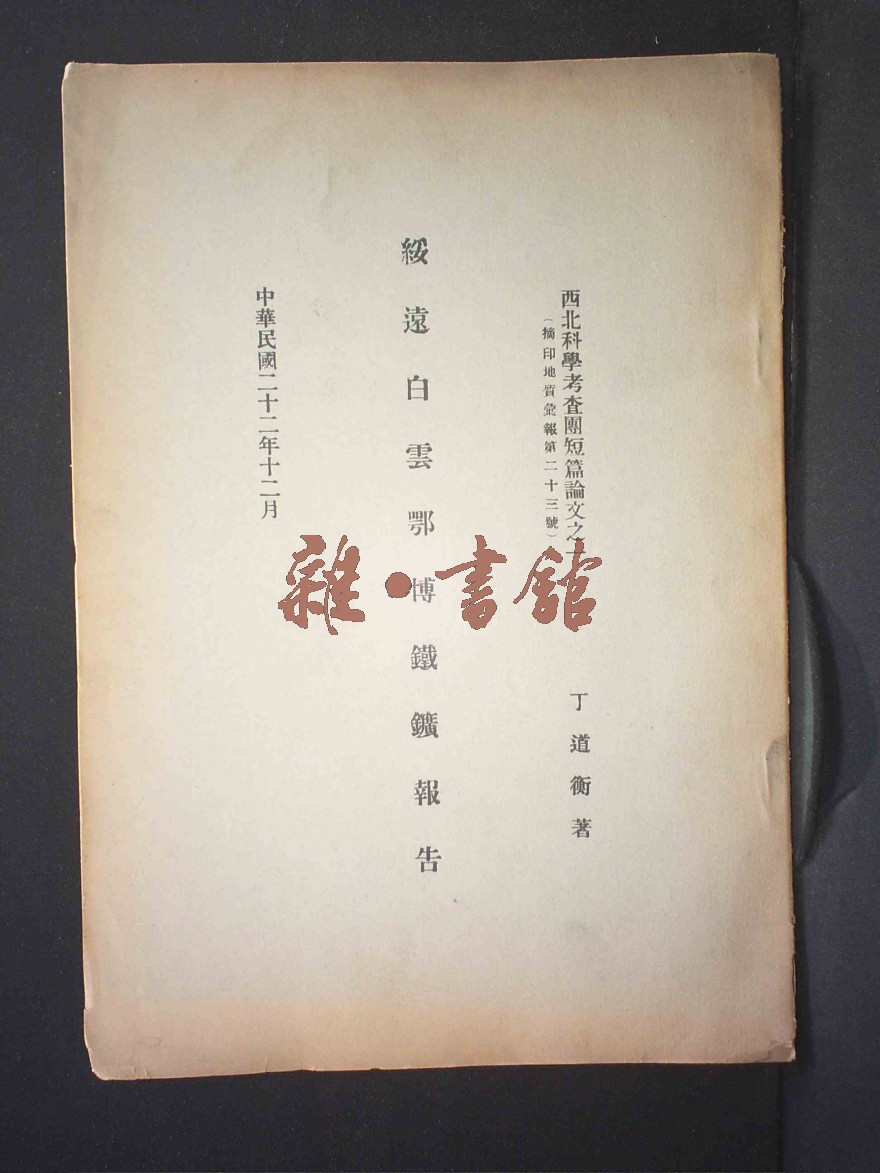 西北科學考查團短篇論文之
（摘印地質彙報第二十三號）
丁道衡著
綏遠白雲鄂博鐵鑛報告
中華民國二十二年十二月
雜·書館